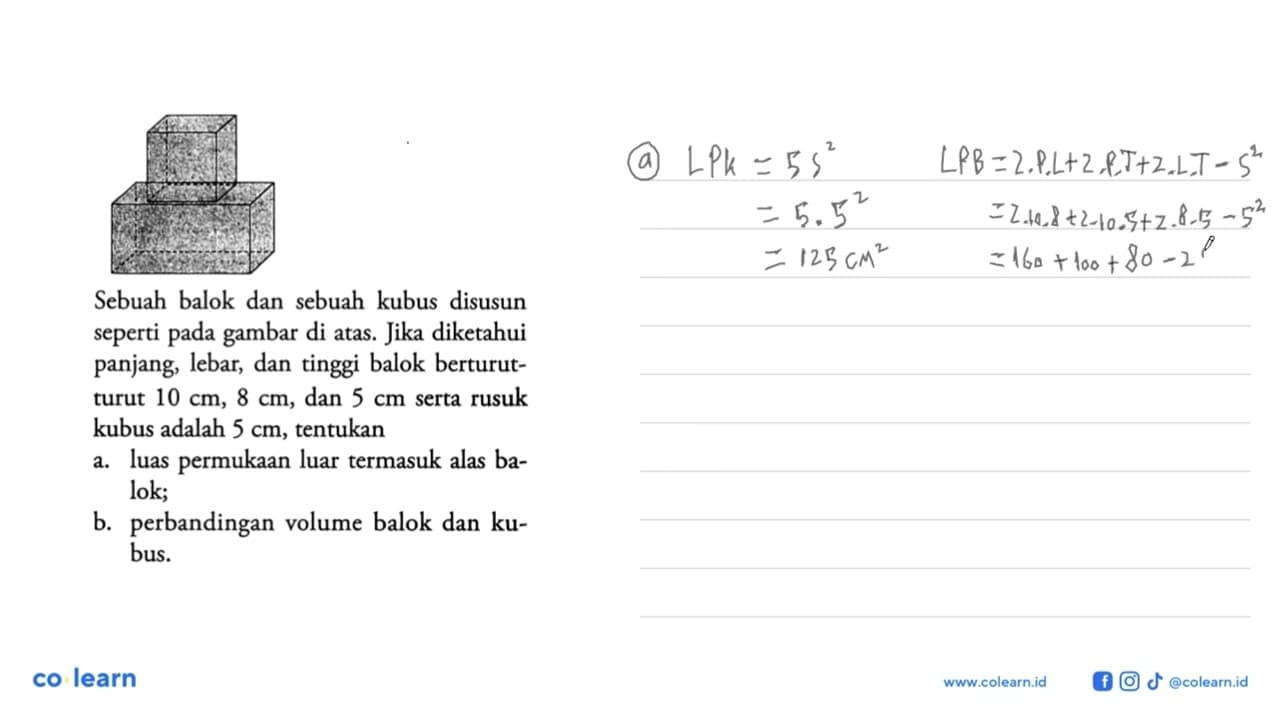 Sebuah balok dan sebuah kubus disusun
seperti pada gambar di atas. Jika diketahui
panjang, lebar, dan tinggi balok berturut-
turut 10 cm, 8 cm, dan 5 cm serta rusuk
kubus adalah 5 cm, tentukan
a. luas permukaan luar termasuk alas ba-
lok;
b. perbandingan volume balok dan ku-
bus.
a LPk = 5s²
= 5.5²
= 125 cm²
LPB = 2.P.L+2.P.T+2.L.T - s²
= 2.10.8+2.10.5+2.8.5 - 5²
= 160 + 100 + 80 - 2
co learn
www.colearn.id
@colearn.id